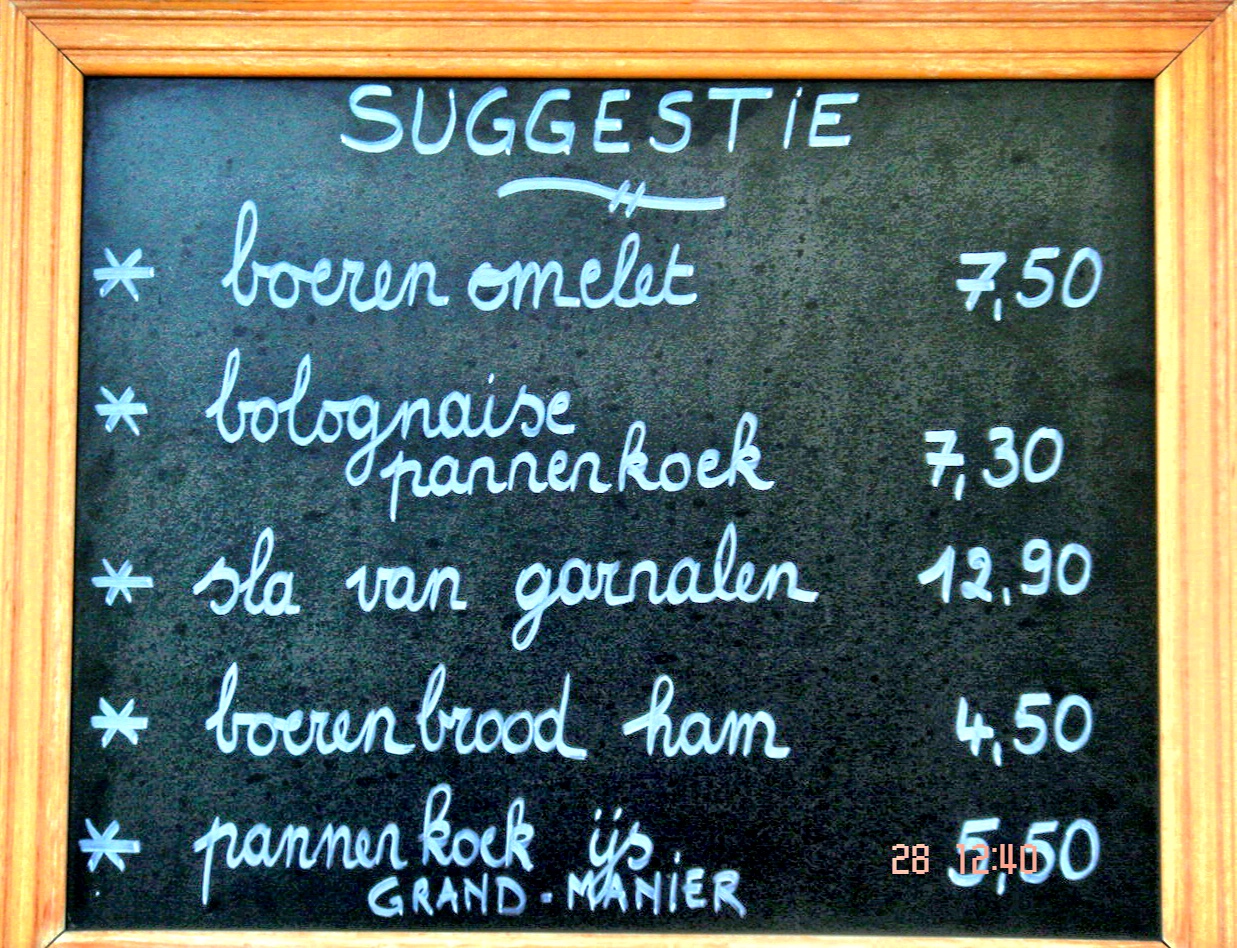 SUGGESTIE
* boeren omelet 7,50
* bolognaise
pannenkoek 7,30
* sla van garnalen 12,90
* boerenbrood ham 4,50
* pannenkoek ijs 5,50
GRAND-MANIER
28 12:40